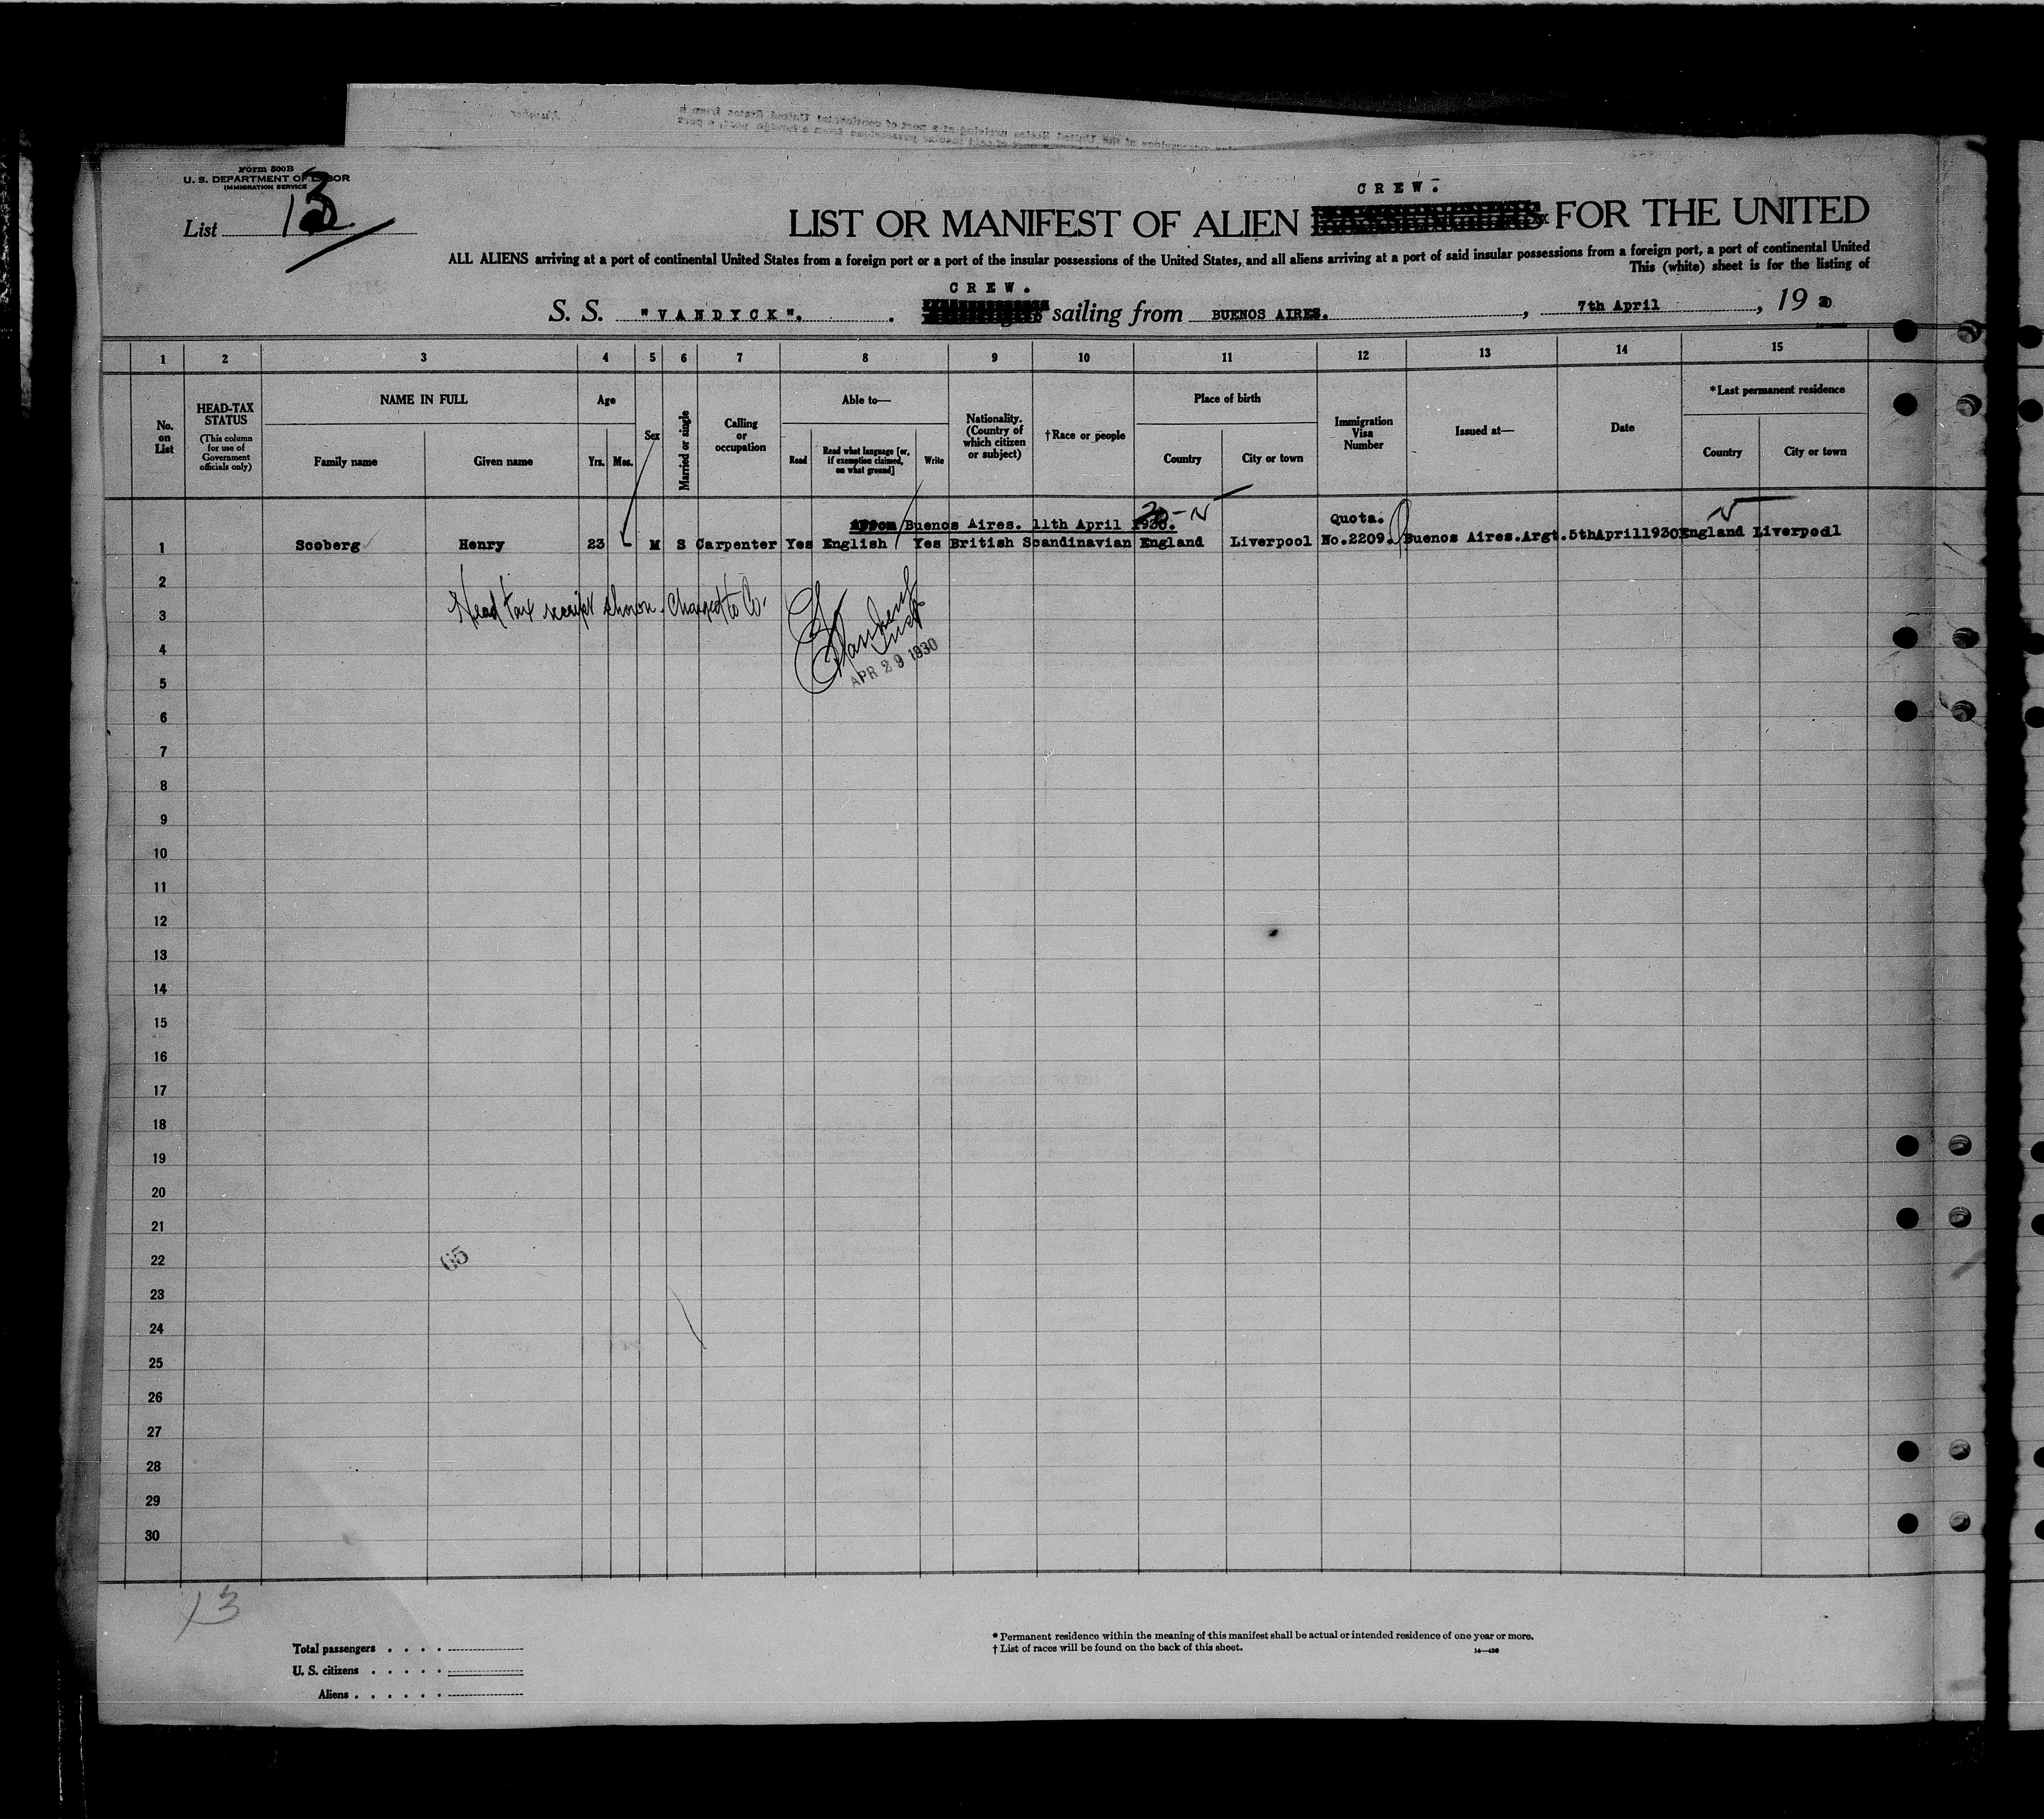 Form 500B
U. S. DEPARTMENT OF LABOR
IMMIGRATION SERVICE
List 13
CREW.
LIST OR MANIFEST OF ALIEN FOR THE UNITED
ALL ALIENS arriving at a port of continental United States from a foreign port or a port of the insular possessions of the United States, and all aliens arriving at a port of said insular possessions from a foreign port, a port of continental United
This (white) sheet is for the listing of
CREW.
S. S. "VANDYCK". sailing from BUENOS AIRES. , 7th April , 19
1 2 3 4 5 6 7 8 9 10 11 12 13 14 15
No. on List
HEAD-TAX STATUS
(This column for use of Government officials only)
NAME IN FULL
Family name
Given name
Age
Yrs.
Mos.
Sex
Married or single
Calling or occupation
Able to—
Read
Read what language [or, if exemption claimed, on what ground]
Write
Nationality. (Country of which citizen or subject)
†Race or people
Place of birth
Country
City or town
Immigration Visa Number
Issued at—
Date
*Last permanent residence
Country
City or town
Buenos Aires. 11th April 1930.
Quota.
1 Scoberg Henry 23 M S Carpenter Yes English Yes British Scandinavian England Liverpool No.2209. Buenos Aires.Argt. 5thApril1930 England Liverpool
2
Head tax receipt shown. Charged to Co.
3
4
APR 29 1930
5
6
7
8
9
10
11
12
13
14
15
16
17
18
19
20
21
22
65
23
24
25
26
27
28
29
30
13
Total passengers . . . .
U. S. citizens . . . . .
Aliens . . . . . .
* Permanent residence within the meaning of this manifest shall be actual or intended residence of one year or more.
† List of races will be found on the back of this sheet.